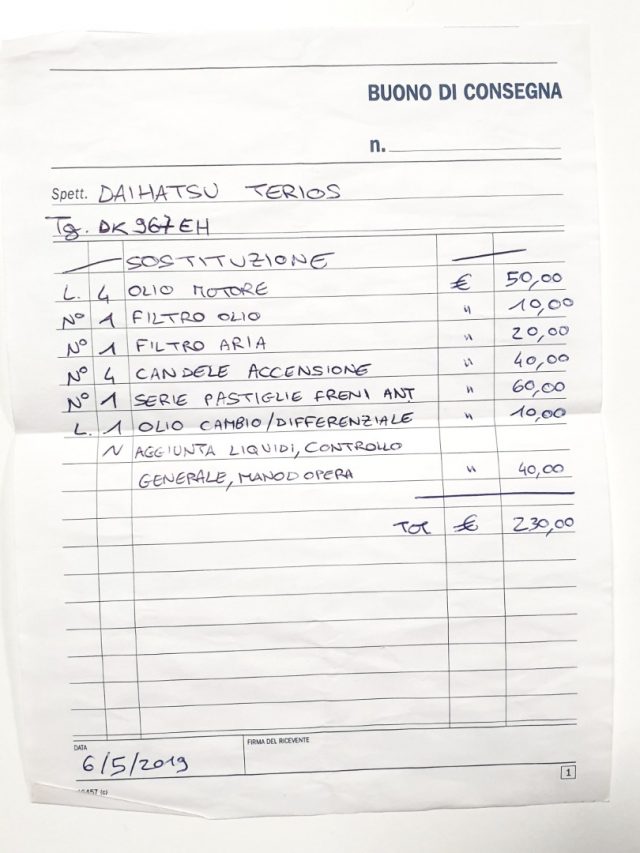 BUONO DI CONSEGNA
n.
Spett. DAIHATSU TERIOS
Tg. DK 967 EH
SOSTITUZIONE
L. 4 OLIO MOTORE € 50,00
N° 1 FILTRO OLIO " 10,00
N° 1 FILTRO ARIA " 20,00
N° 4 CANDELE ACCENSIONE " 40,00
N° 1 SERIE PASTIGLIE FRENI ANT " 60,00
L. 1 OLIO CAMBIO/DIFFERENZIALE " 10,00
~ AGGIUNTA LIQUIDI, CONTROLLO
GENERALE, MANODOPERA " 40,00
TOT € 230,00
DATA
FIRMA DEL RICEVENTE
6/5/2019
1